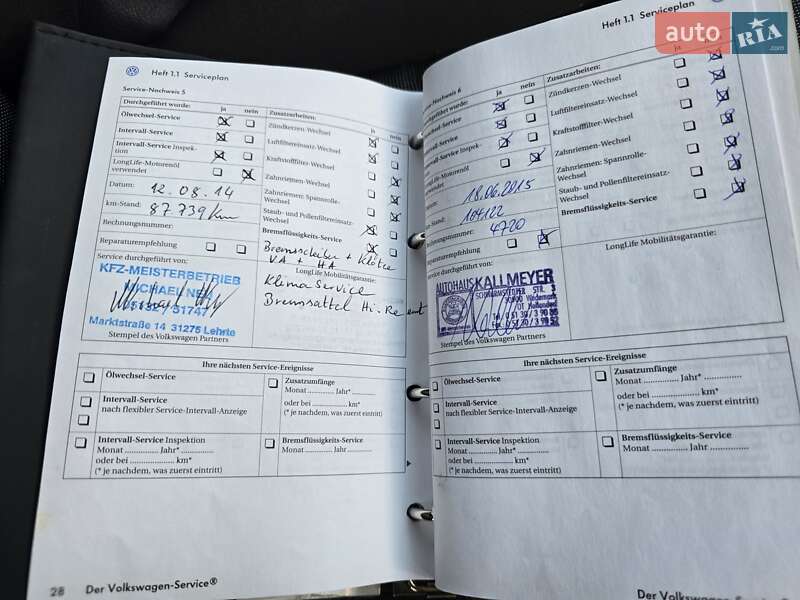 Heft 1.1 Serviceplan
Service-Nachweis 5
Durchgeführt wurde:
ja
nein
Ölwechsel-Service
Intervall-Service
Intervall-Service Inspek-
tion
LongLife-Motorenöl
verwendet
Datum:
12.08.14
km-Stand:
87.739 km
Rechnungsnummer:
Reparaturempfehlung
Service durchgeführt von:
KFZ-MEISTERBETRIEB
MICHAEL
05132 / 51747
Marktstraße 14 31275 Lehrte
Stempel des Volkswagen Partners
Zusatzarbeiten:
ja
nein
Zündkerzen-Wechsel
Luftfiltereinsatz-Wechsel
Kraftstofffilter-Wechsel
Zahnriemen-Wechsel
Zahnriemen: Spannrolle-
Wechsel
Staub- und Pollenfiltereinsatz-
Wechsel
Bremsflüssigkeits-Service
Bremsscheiben + Klötze
VA + HA
LongLife Mobilitätsgarantie:
Klima Service
Bremssattel Hi. Re
Ihre nächsten Service-Ereignisse
Ölwechsel-Service
Intervall-Service
nach flexibler Service-Intervall-Anzeige
Intervall-Service Inspektion
Monat ............ Jahr*............
oder bei .................... km*
(* je nachdem, was zuerst eintritt)
Zusatzumfänge
Monat ............ Jahr* ............
oder bei .................... km*
(* je nachdem, was zuerst eintritt)
Bremsflüssigkeits-Service
Monat ............ Jahr ............
28
Der Volkswagen-Service®
Heft 1.1 Serviceplan
auto RIA
.com
Service-Nachweis 6
Durchgeführt wurde:
ja
nein
Ölwechsel-Service
Intervall-Service
Intervall-Service Inspek-
LongLife-Motorenöl
verwendet
Datum:
18.06.2015
-Stand:
104122
Rechnungsnummer:
4720
Reparaturempfehlung
Service durchgeführt von:
AUTOHAUS KALLMEYER
STR. 3
30900 Wedemark
Stempel des Volkswagen Partners
Zusatzarbeiten:
ja
Zündkerzen-Wechsel
Luftfiltereinsatz-Wechsel
Kraftstofffilter-Wechsel
Zahnriemen-Wechsel
Zahnriemen: Spannrolle-
Wechsel
Staub- und Pollenfiltereinsatz-
Wechsel
Bremsflüssigkeits-Service
LongLife Mobilitätsgarantie:
Ihre nächsten Service-Ereignisse
Ölwechsel-Service
Intervall-Service
nach flexibler Service-Intervall-Anzeige
Intervall-Service Inspektion
Monat ............ Jahr*............
oder bei .................... km*
(* je nachdem, was zuerst eintritt)
Zusatzumfänge
Monat ............ Jahr* ............
oder bei .................... km*
(* je nachdem, was zuerst eintritt)
Bremsflüssigkeits-Service
Monat ............ Jahr ............
Der Volkswagen-Serv